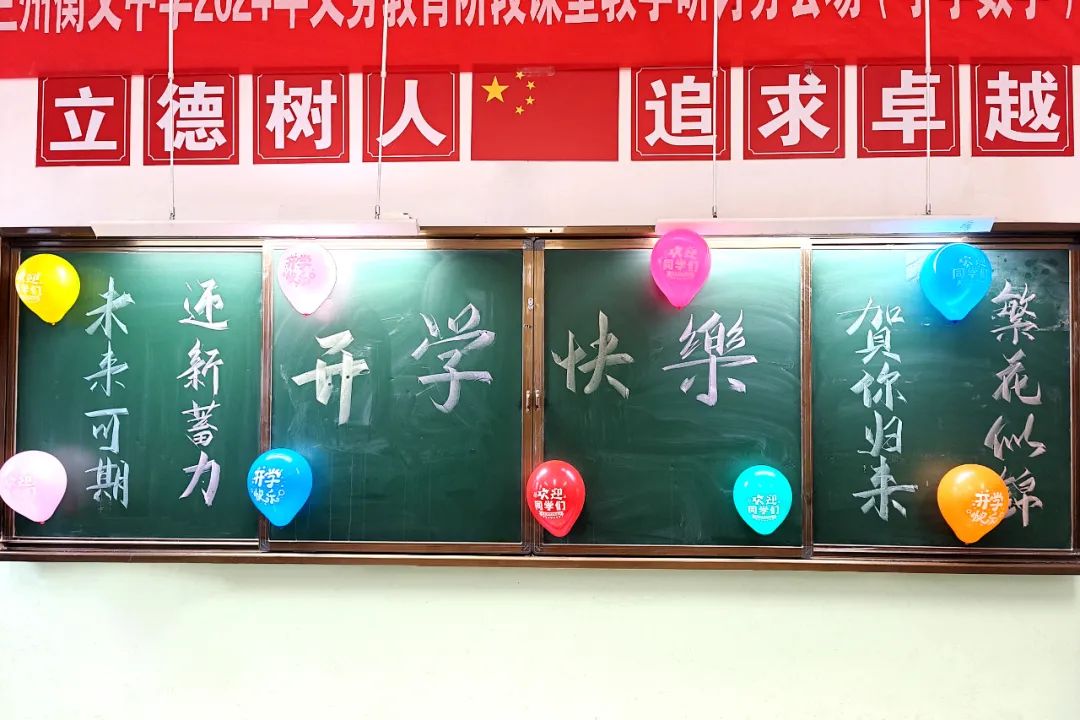 州衡文中学2024年义务教育阶段课堂教学研讨分会场（学数学）
立德树人
追求卓越
繁花似錦
賀你归来
开学快樂
还新蓄力
未来可期
欢迎
同学们
开学
快乐
欢迎
同学们
欢迎
同学们
开学
快乐
欢迎
同学们
欢迎
同学们
开学
快乐